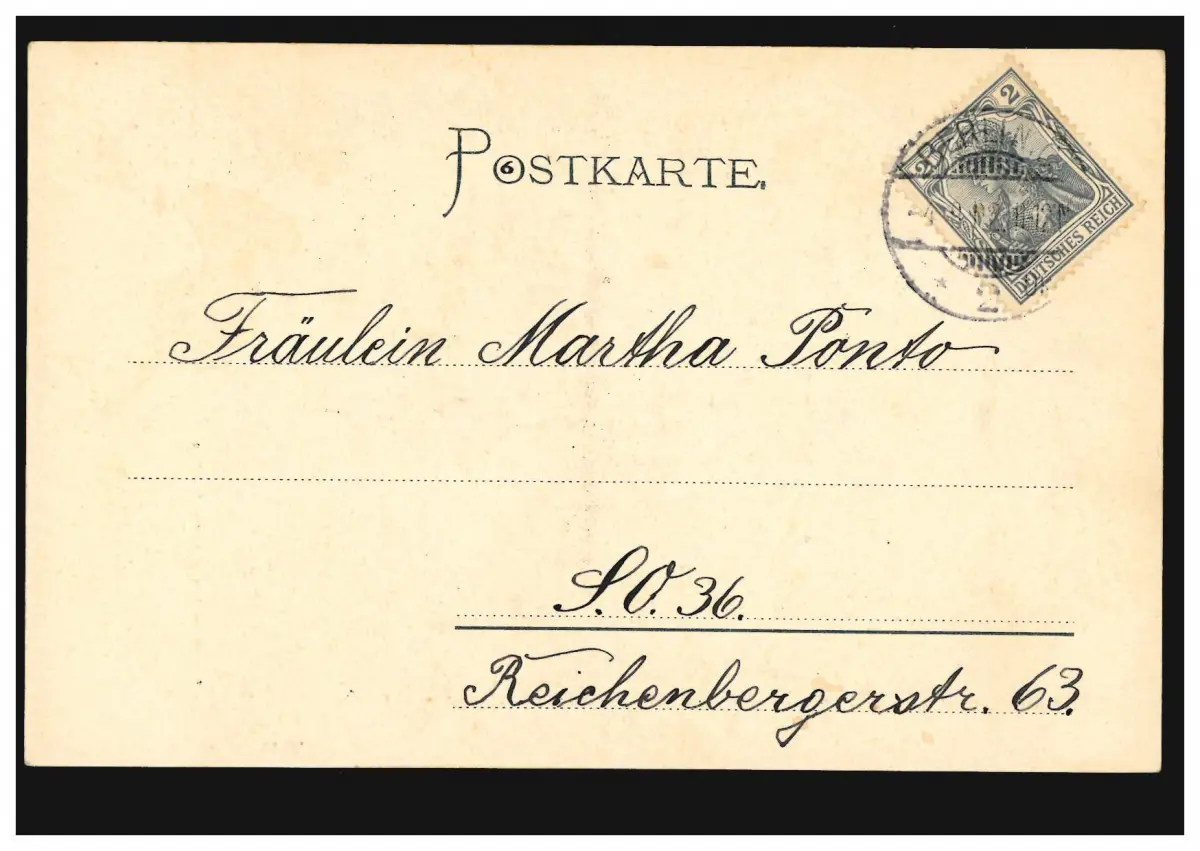 POSTKARTE.
6
2 2
DEUTSCHES REICH
BERLIN
2
Fräulein Martha Ponto
S.O. 36.
Reichenbergerstr. 63.